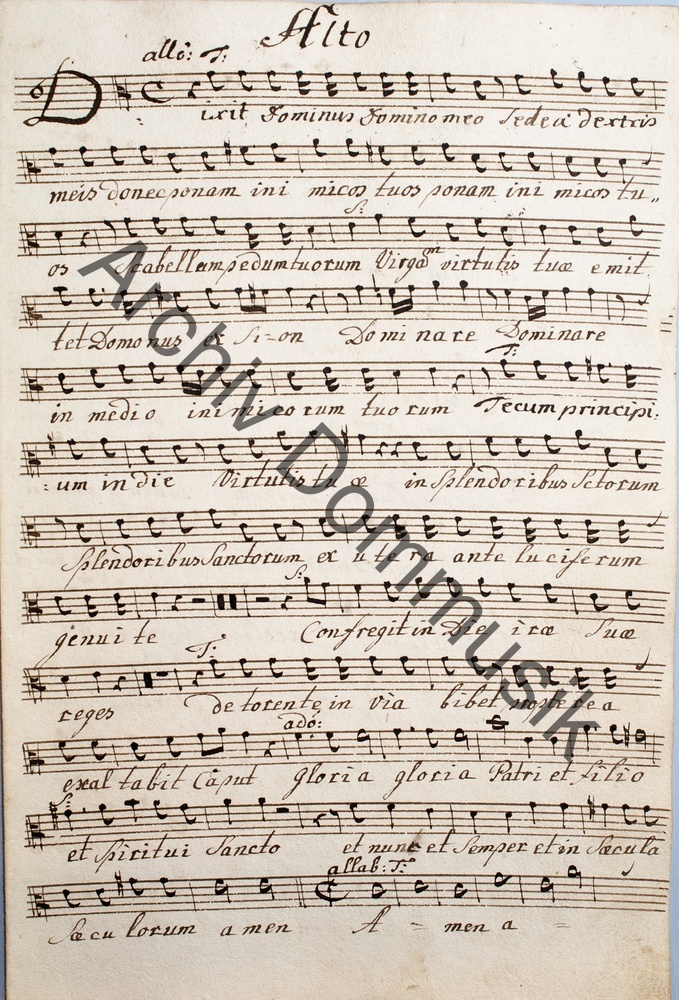 Alto
allo: T:
Dixit Dominus Domino meo Sede a dextris
meis donec ponam ini micos tuos ponam ini micos tu„
S:
os Scabellum pedum tuorum Virgam virtutis tuæ emit
tet Domonus ex Si-on Dominare Dominare
T:
in medio inimicorum tuorum Tecum principi:
:um in die Virtutis tuæ in Splendoribus Sctorum
Splendoribus Sanctorum ex utera ante luciferum
S:
genui te Confregit in Die iræ Suæ
T:
reges de torente in via bibet propterea
ado:
exaltabit Caput Gloria gloria Patri et filio
S:
et Spiritui Sancto et nunc et Semper et in Sæcula
allab: T:
Sæculorum amen A - men a =
Archiv Dommusik